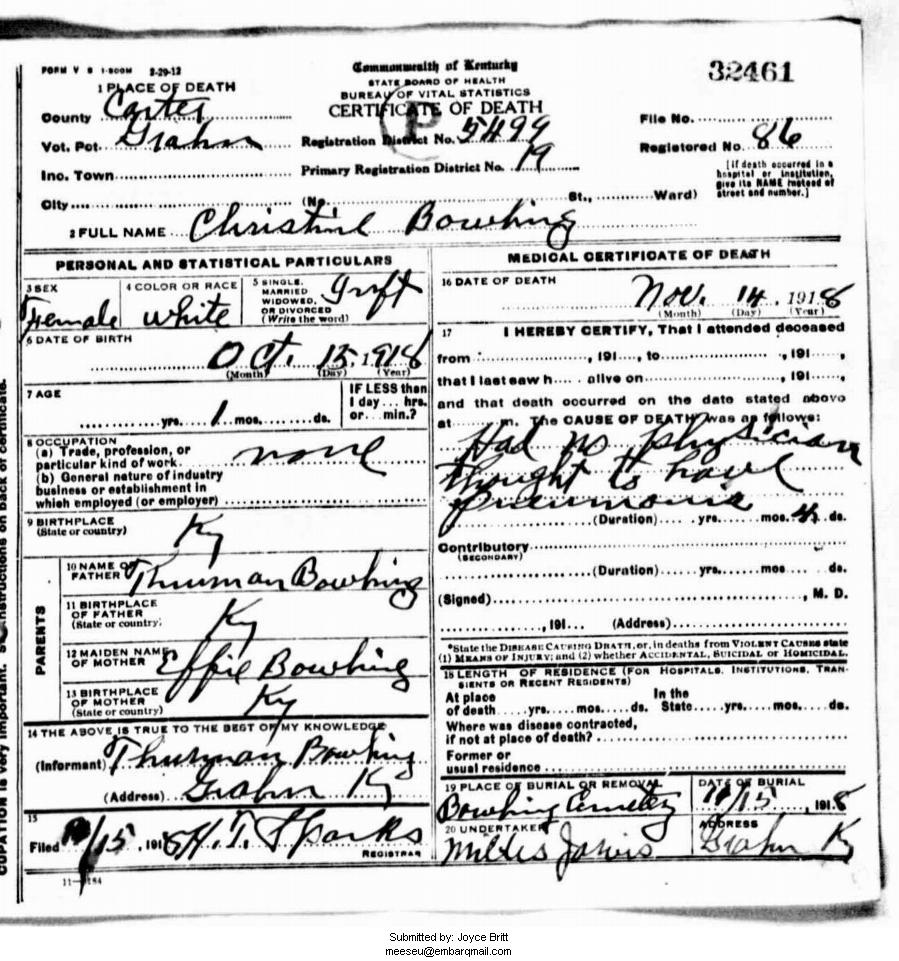 FORM V S 1-500M 2-29-12
Commonwealth of Kentucky
STATE BOARD OF HEALTH
BUREAU OF VITAL STATISTICS
CERTIFICATE OF DEATH
P
32461
1 PLACE OF DEATH
County Carter
Vot. Pct. Grahn
Inc. Town
City (No. St., Ward)
Registration District No. 5499
Primary Registration District No. 19
File No.
Registered No. 86
[If death occurred in a
hospital or institution,
give its NAME instead of
street and number.]
2 FULL NAME Christine Bowling
PERSONAL AND STATISTICAL PARTICULARS
3 SEX
Female
4 COLOR OR RACE
White
5 SINGLE,
MARRIED
WIDOWED,
OR DIVORCED
(Write the word)
6 DATE OF BIRTH
Oct. 15, 1918
(Month) (Day) (Year)
7 AGE
yrs. 1 mos. ds.
IF LESS than
1 day... hrs.
or... min.?
8 OCCUPATION
(a) Trade, profession, or
particular kind of work none
(b) General nature of industry
business or establishment in
which employed (or employer)
9 BIRTHPLACE
(State or country)
Ky
PARENTS
10 NAME OF
FATHER Thurman Bowling
11 BIRTHPLACE
OF FATHER
(State or country)
Ky
12 MAIDEN NAME
OF MOTHER Effie Bowling
13 BIRTHPLACE
OF MOTHER
(State or country)
Ky
14 THE ABOVE IS TRUE TO THE BEST OF MY KNOWLEDGE
(Informant) Thurman Bowling
(Address) Grahn Ky
15
Filed /15, 1918 H.T. Sparks
REGISTRAR
MEDICAL CERTIFICATE OF DEATH
16 DATE OF DEATH
Nov. 14, 1918
(Month) (Day) (Year)
17 I HEREBY CERTIFY, That I attended deceased
from , 191 , to , 191 ,
that I last saw h alive on , 191 ,
and that death occurred on the date stated above
at m. The CAUSE OF DEATH was as follows:
Had no physician
thought to have
Pneumonia
(Duration) yrs. mos. 4 ds.
Contributory
(SECONDARY)
(Duration) yrs. mos. ds.
(Signed) , M. D.
, 191 (Address)
*State the DISEASE CAUSING DEATH, or, in deaths from VIOLENT CAUSES state
(1) MEANS OF INJURY; and (2) whether ACCIDENTAL, SUICIDAL or HOMICIDAL.
18 LENGTH OF RESIDENCE (FOR HOSPITALS, INSTITUTIONS, TRAN-
SIENTS OR RECENT RESIDENTS)
At place
of death yrs. mos. ds.
In the
State yrs. mos. ds.
Where was disease contracted,
if not at place of death?
Former or
usual residence
19 PLACE OF BURIAL OR REMOVAL
Bowling Cemetery
DATE OF BURIAL
11/15, 1918
20 UNDERTAKER
Jarvis
ADDRESS
Grahn Ky
CUPATION is very important. instructions on back of certificate.
Submitted by: Joyce Britt
meeseu@embarqmail.com